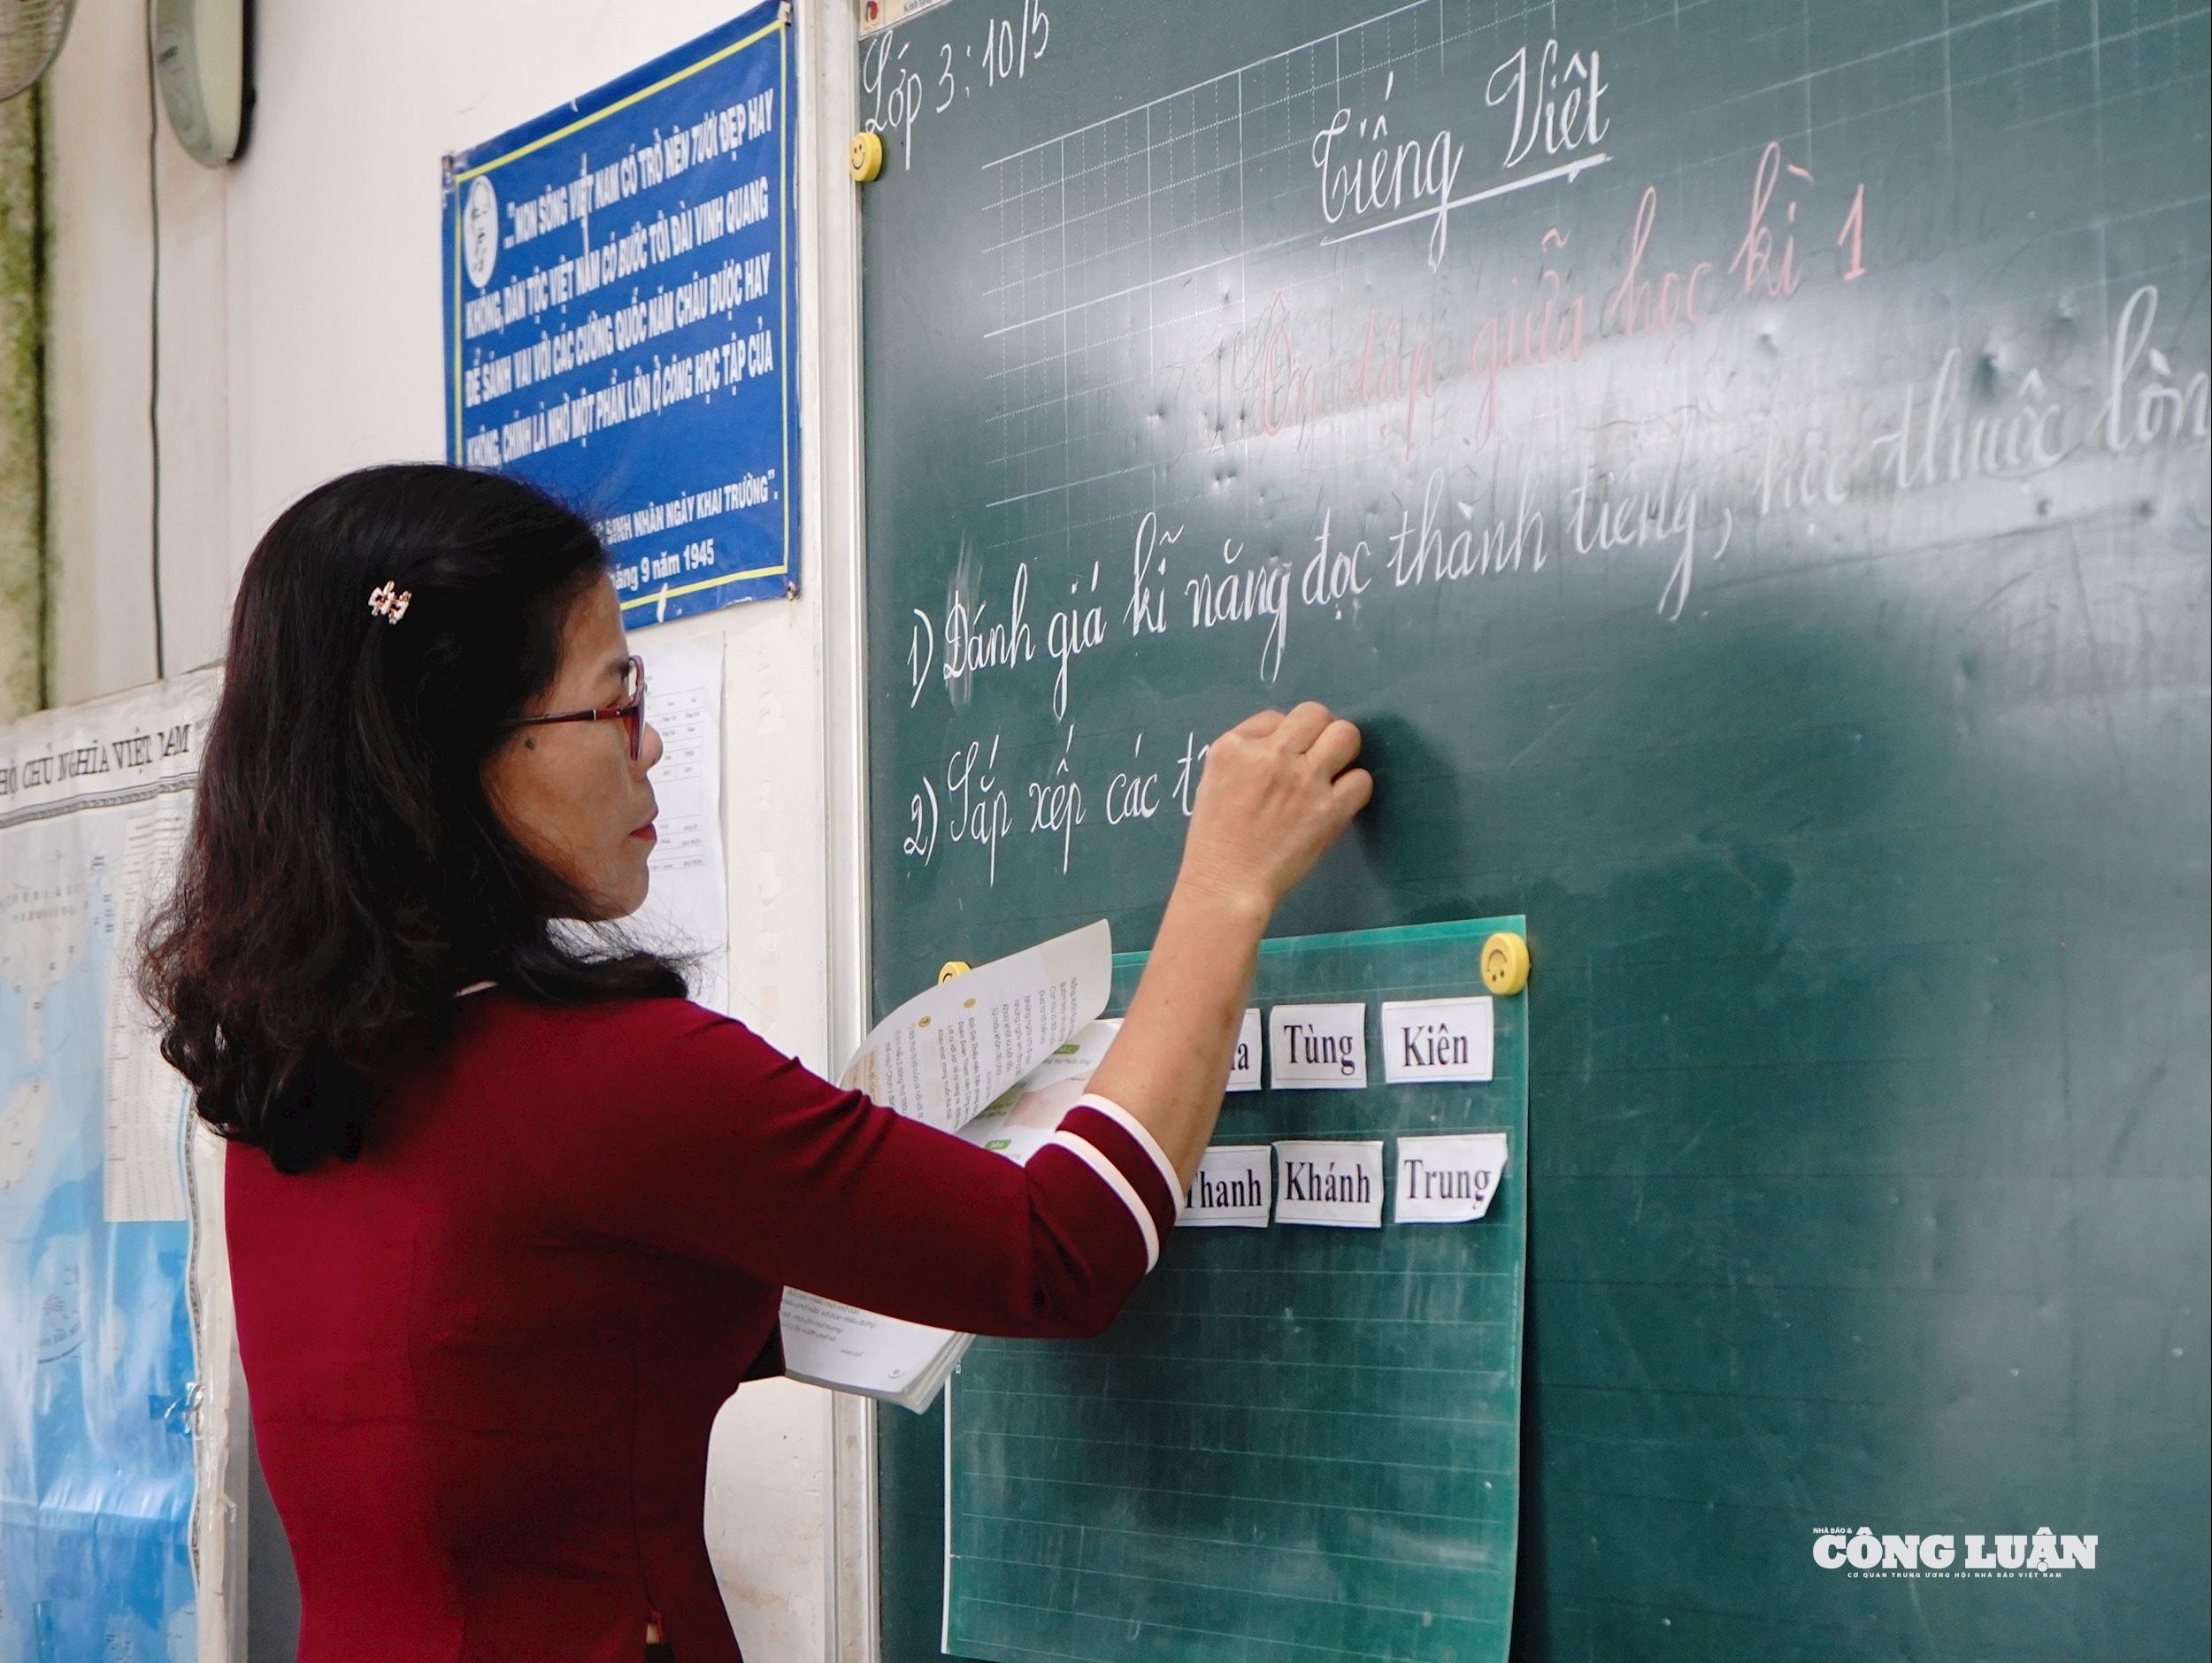 "NON SÔNG VIỆT NAM CÓ TRỞ NÊN TƯƠI ĐẸP HAY
KHÔNG, DÂN TỘC VIỆT NAM CÓ BƯỚC TỚI ĐÀI VINH QUANG
ĐỂ SÁNH VAI VỚI CÁC CƯỜNG QUỐC NĂM CHÂU ĐƯỢC HAY
KHÔNG, CHÍNH LÀ NHỜ MỘT PHẦN LỚN Ở CÔNG HỌC TẬP CỦA
SINH NHÂN NGÀY KHAI TRƯỜNG".
9 năm 1945
CHỦ NGHĨA VIỆT NAM
Lớp 3: 10/5
Tiếng Việt
Ôn tập giữa học kì 1
1) Đánh giá kĩ năng đọc thành tiếng, học thuộc lòn
2) Sắp xếp các t
Tùng Kiên
Thanh Khánh Trung
NHÀ BÁO &
CÔNG LUẬN
CƠ QUAN TRUNG ƯƠNG HỘI NHÀ BÁO VIỆT NAM